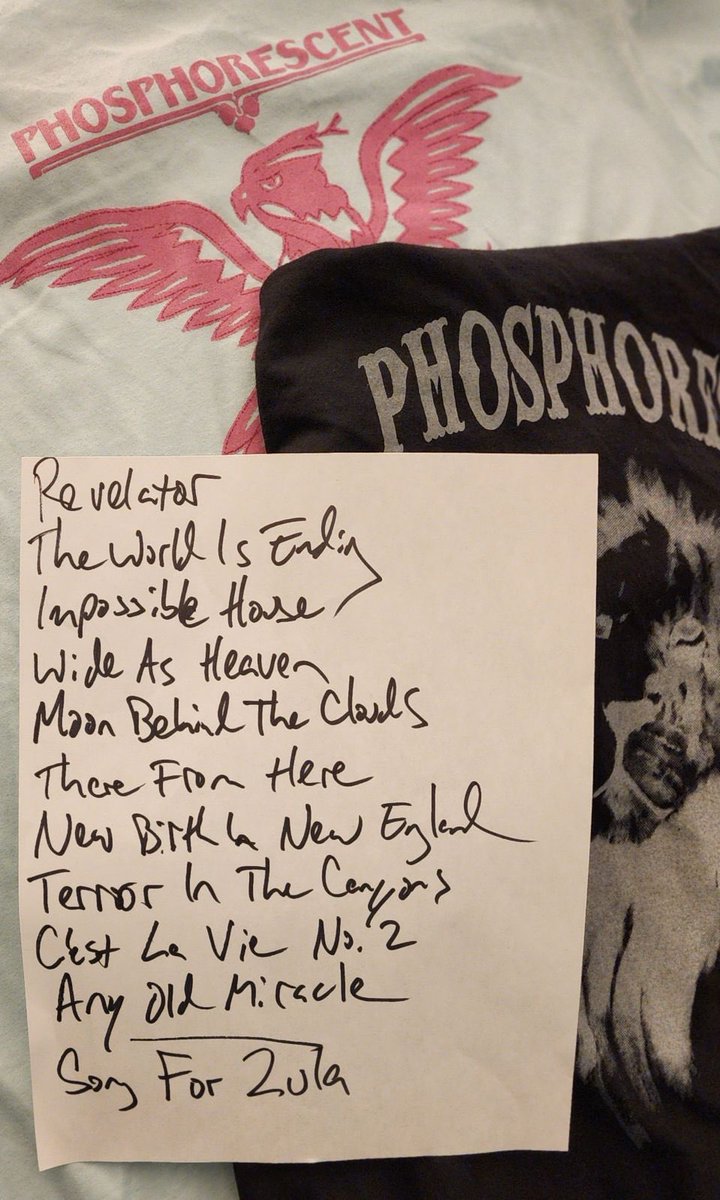 PHOSPHORESCENT
PHOSPHORE
Revelator
The World Is Ending
Impossible House
Wide As Heaven
Moon Behind The Clouds
There From Here
New Birth In New England
Terror In The Canyons
C'est La Vie No. 2
Any Old Miracle
Song For Zula